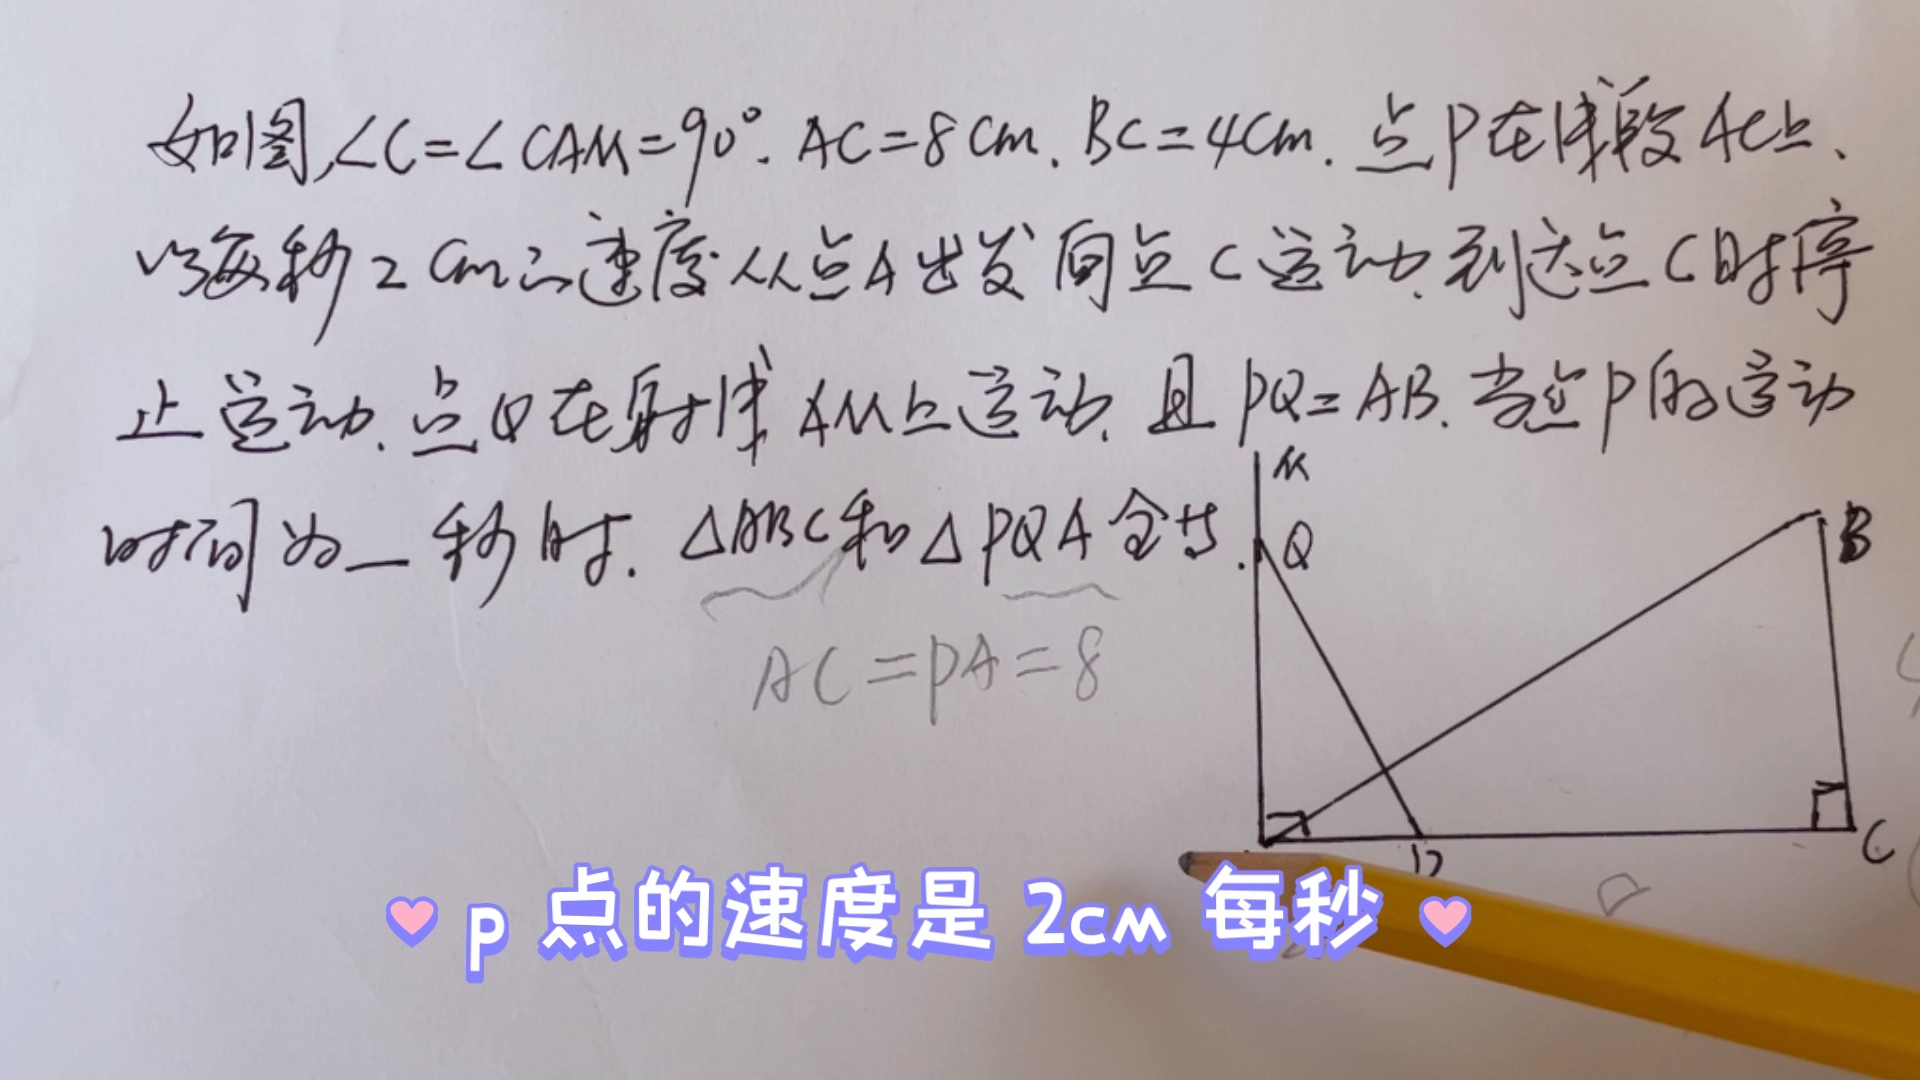 如图,∠C=∠CAM=90°. AC=8cm. BC=4cm. 点P在线段AC上、
以每秒2cm的速度从点A出发向点C运动.到达点C时停
止运动.点Q在射线AM上运动.且PQ=AB.当点P的运动
时间为_秒时.△ABC和△PQA全等.
AC=PA=8
M
Q
B
P
C
p 点的速度是 2cm 每秒